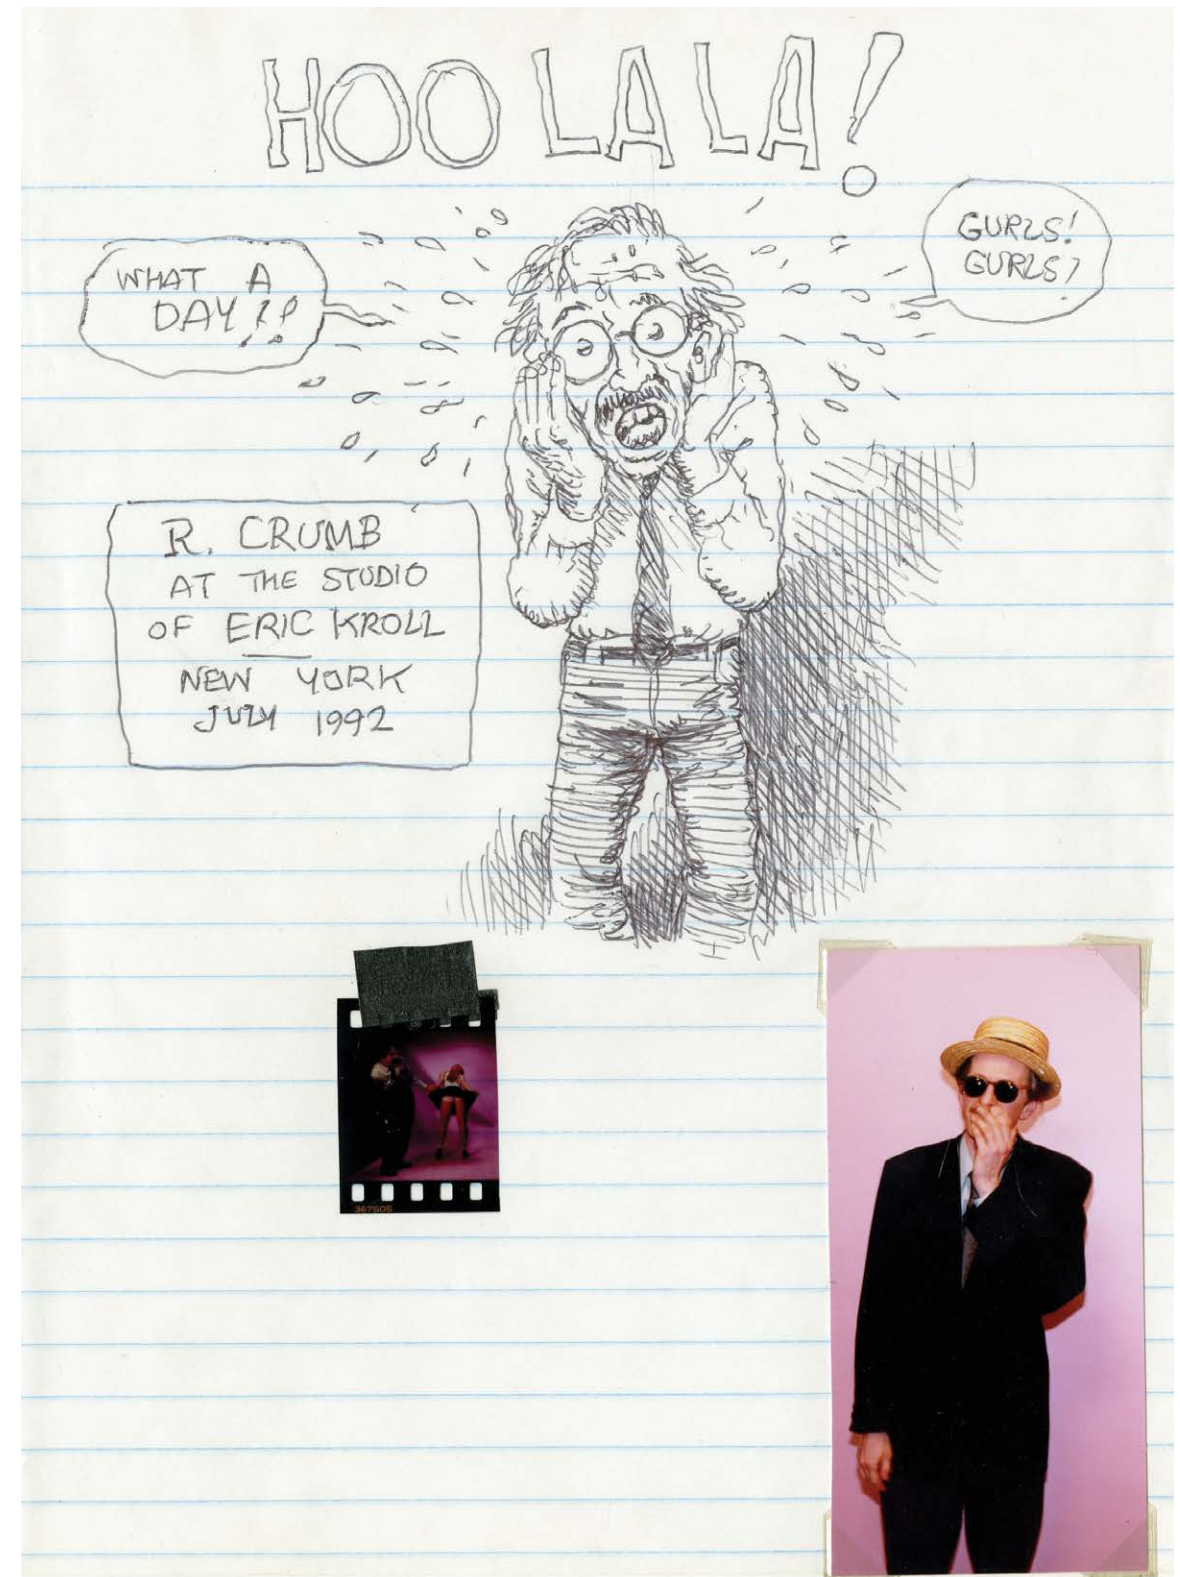 HOO LA LA!
WHAT A
DAY!?!?
GURLS!
GURLS!
R. CRUMB
AT THE STUDIO
OF ERIC KROLL
NEW YORK
JULY 1992
367505